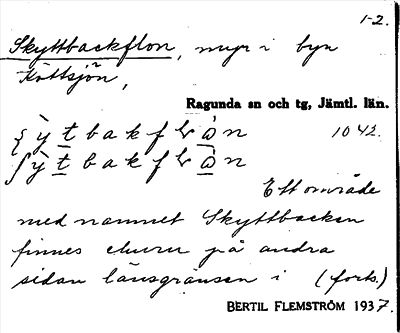 1-2.
Skyttbackflon, myr i byn
Köttsjön,
Ragunda sn och tg, Jämtl. län.
1042.
Ett område
med namnet Skyttbacken
finnes även på andra
sidan länsgränsen i (forts.)
BERTIL FLEMSTRÖM 1937.